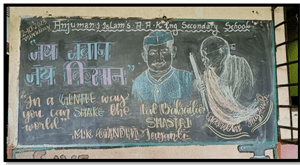 Anjuman-i-Islam's A.A.K. Eng Secondary School
"जय जवान
जय किसान"
"In a GENTLE way
you can SHAKE the
world"
M.K GANDHI
Lal Bahadur
SHASTRI
Jayanti